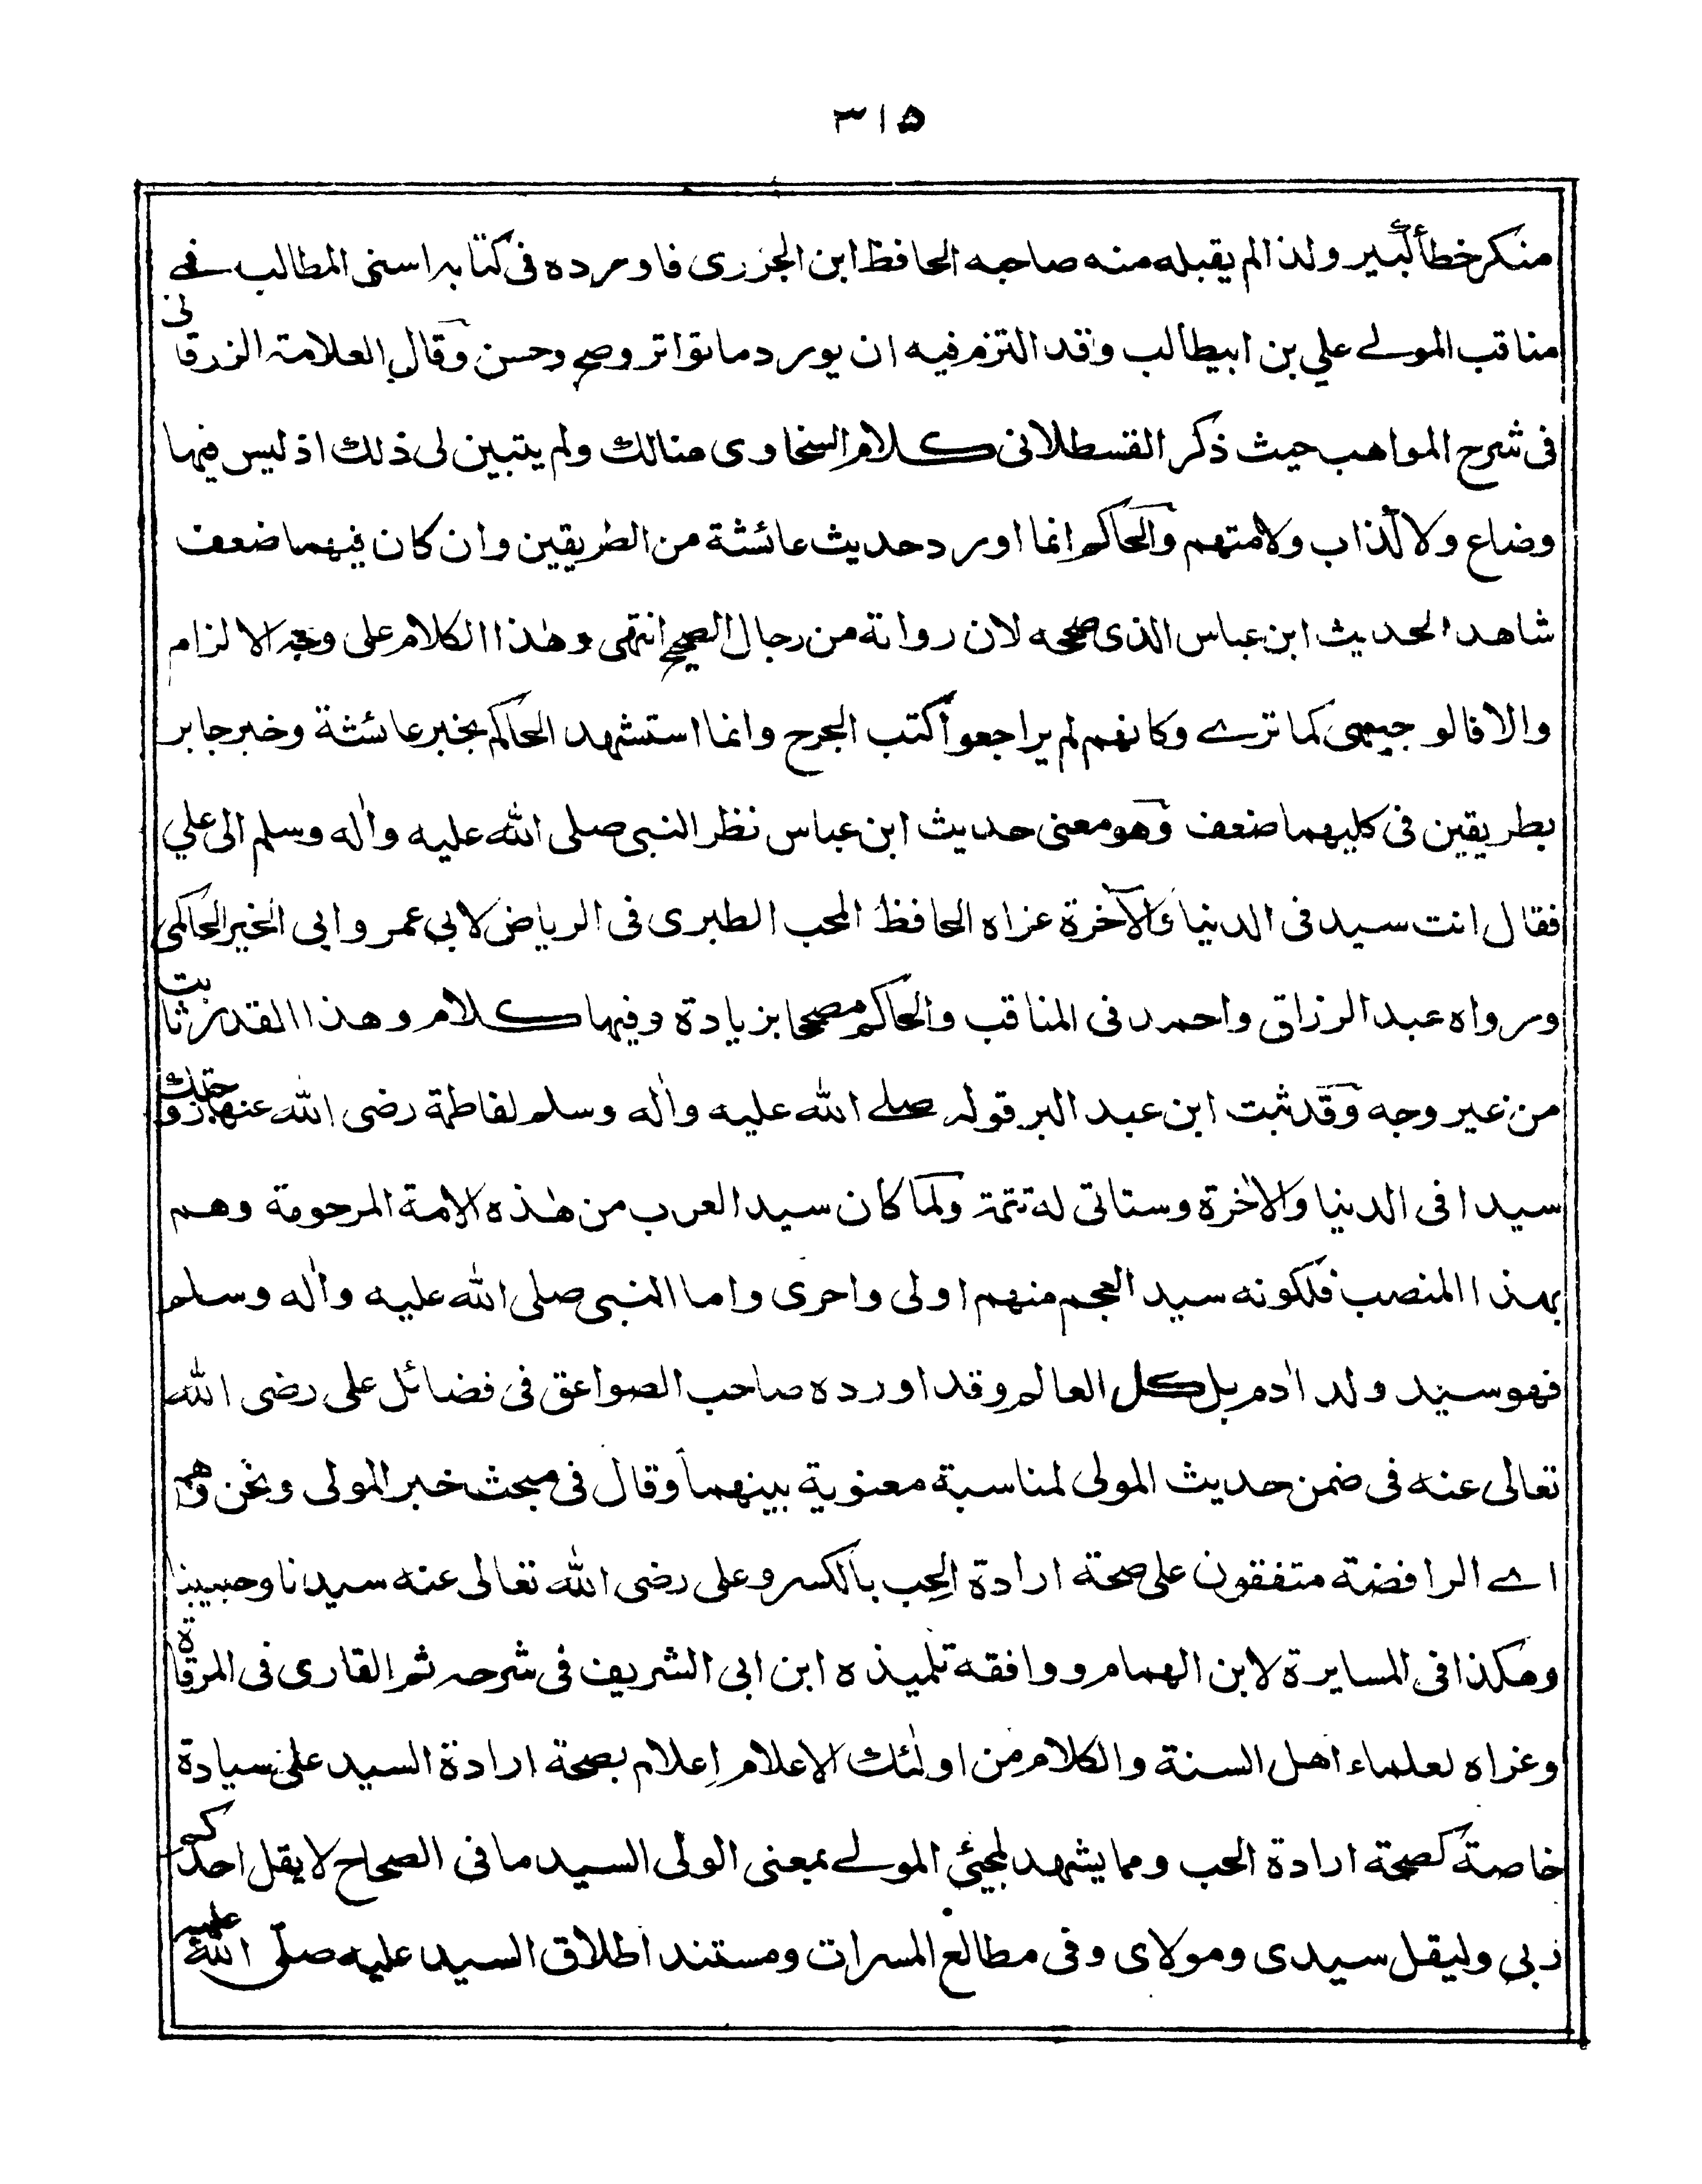 ٣١٥
منكر خطأ كبير ولذا لم يقبله منه صاحبه الحافظ ابن الجزرى فاورده فى كتابه اسنى المطالب فے
مناقب المولے علي بن ابيطالب وقد التزم فيه ان يورد ما تواتر وصح وحسن وقال العلامة الزرقانى
فى شرح المواهب حيث ذكر القسطلانى كلام السخاوى هنالك ولم يتبين لى ذلك اذ ليس فيها
وضاع ولا كذاب ولا متهم والحاكم انما اورد حديث عائشة من الطريقين وان كان فيهما ضعف
شاهدا لحديث ابن عباس الذى صححه لان رواته من رجال الصحيح انتهى وهذا الكلام على وجه الالزام
والا فالوجيهى كما ترے وكانهم لم يراجعوا كتب الجرح وانما استشهد الحاكم بخبر عائشة وخبر جابر
بطريقين فى كليهما ضعف وهو معنى حديث ابن عباس نظر النبى صلى الله عليه واله وسلم الى علي
فقال انت سيد فى الدنيا والآخرة عزاه الحافظ المحب الطبرى فى الرياض لابي عمر وابى الخير الحاكمى
ورواه عبد الرزاق واحمد فى المناقب والحاكم مصححا بزيادة وفيها كلام وهذا القدر ثابت
من غير وجه وقد ثبت ابن عبد البر قوله صلے الله عليه واله وسلم لفاطمة رضى الله عنها زوجتك
سيدا فى الدنيا والاخرة وستاتى له تتمة ولما كان سيد العرب من هذه الامة المرحومة وهم
بهذا المنصب فلكونه سيد العجم منهم اولى واحرى واما النبى صلى الله عليه واله وسلم
فهو سيد ولد ادم بل كل العالم وقد اورده صاحب الصواعق فى فضائل على رضى الله
تعالى عنه فى ضمن حديث المولى لمناسبة معنوية بينهما وقال فى مبحث خبر المولى ونحن وهم
اے الرافضة متفقون على صحة ارادة الحِب بالكسر وعلى رضى الله تعالى عنه سيدنا وحبيبنا
وهكذا فى المسايرة لابن الهمام ووافقه تلميذه ابن ابى الشريف فى شرحه ثم القارى فى المرقاة
وعزاه لعلماء اهل السنة والكلام من اولئك الاعلام اِعلام بصحة ارادة السيد على سيادة
خاصة كصحة ارادة الحب ومما يشهد لمجيئ المولے بمعنى الولى السيد ما فى الصحاح لا يقل احدكم
ربي وليقل سيدى ومولاى وفى مطالع المسرات ومستند اطلاق السيد عليه صلّى الله عليه